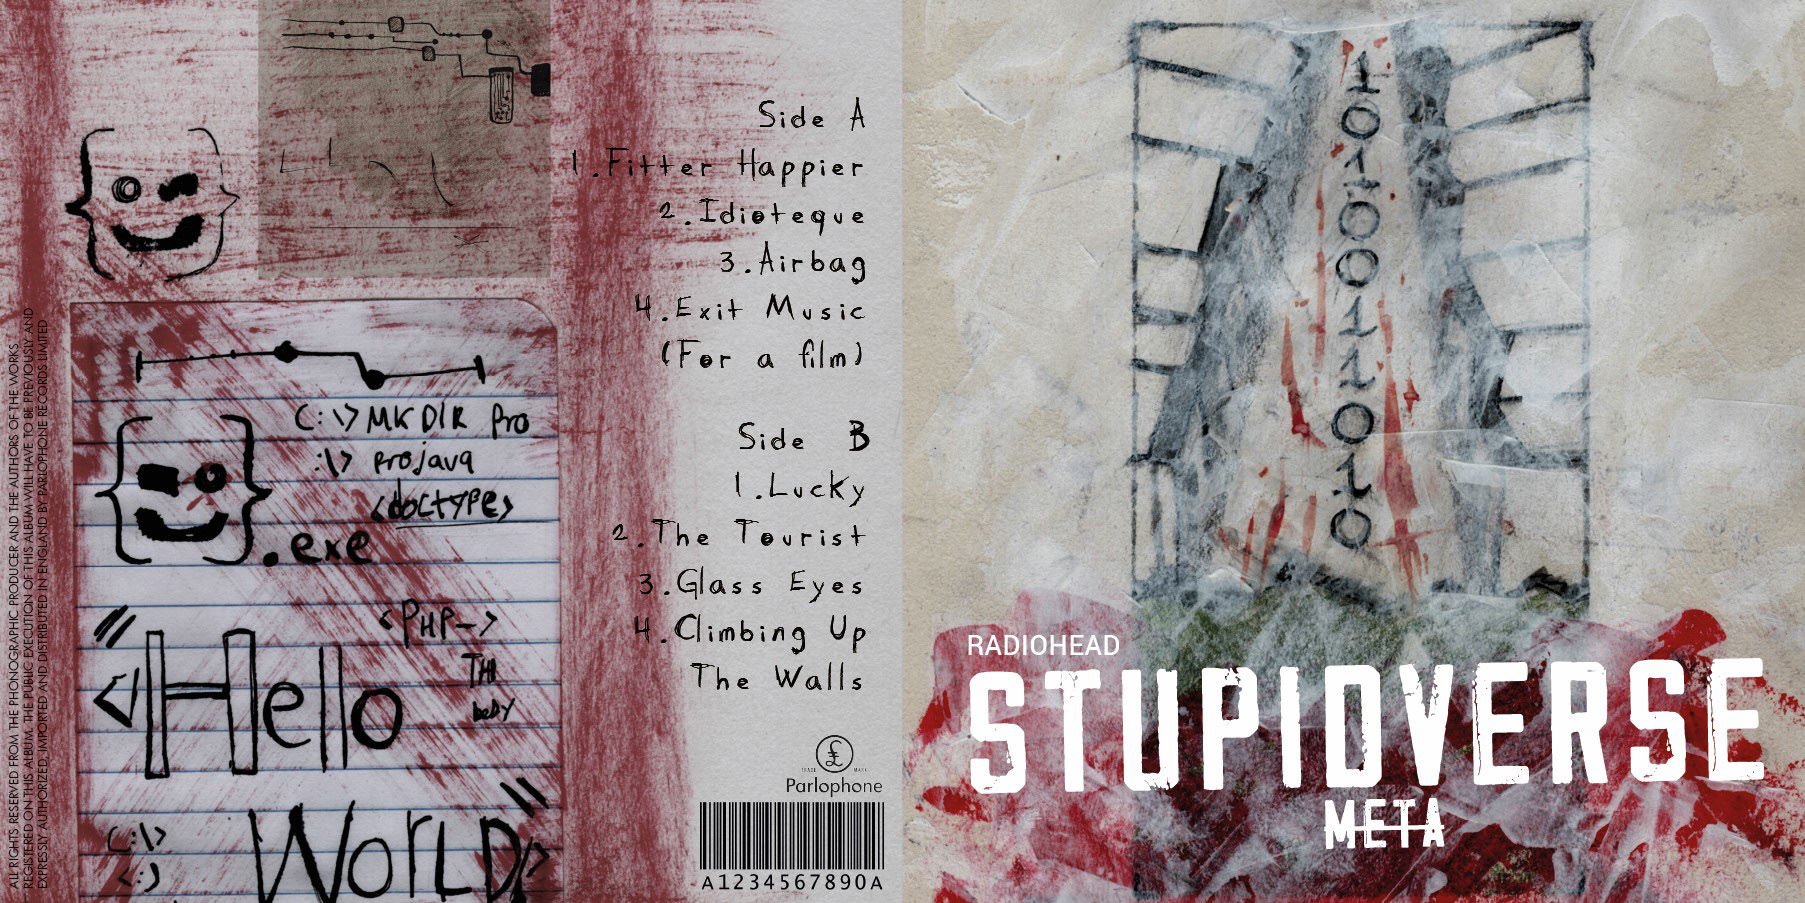 ALL RIGHTS RESERVED FROM THE PHONOGRAPHIC PRODUCER AND THE AUTHORS OF THE WORKS
REGISTERED ON THIS ALBUM. THE PUBLIC EXECUTION OF THIS ALBUM WILL HAVE TO BE PREVIOUSLY AND
EXPRESSLY AUTHORIZED. IMPORTED AND DISTRIBUTED IN ENGLAND BY PARLOPHONE RECORDS LIMITED
C:\>MKDIR Pro
:\> Projava
<doctype>
.exe
<PHP->
</Hello
THE
body
World/>
C:\>
<:)
Side A
1.Fitter Happier
2.Idioteque
3.Airbag
4.Exit Music
(For a film)
Side B
1.Lucky
2.The Tourist
3.Glass Eyes
4.Climbing Up
The Walls
£
TRADE MARK
Parlophone
A1234567890A
1
0
1
0
0
1
1
0
1
0
RADIOHEAD
STUPIDVERSE
META